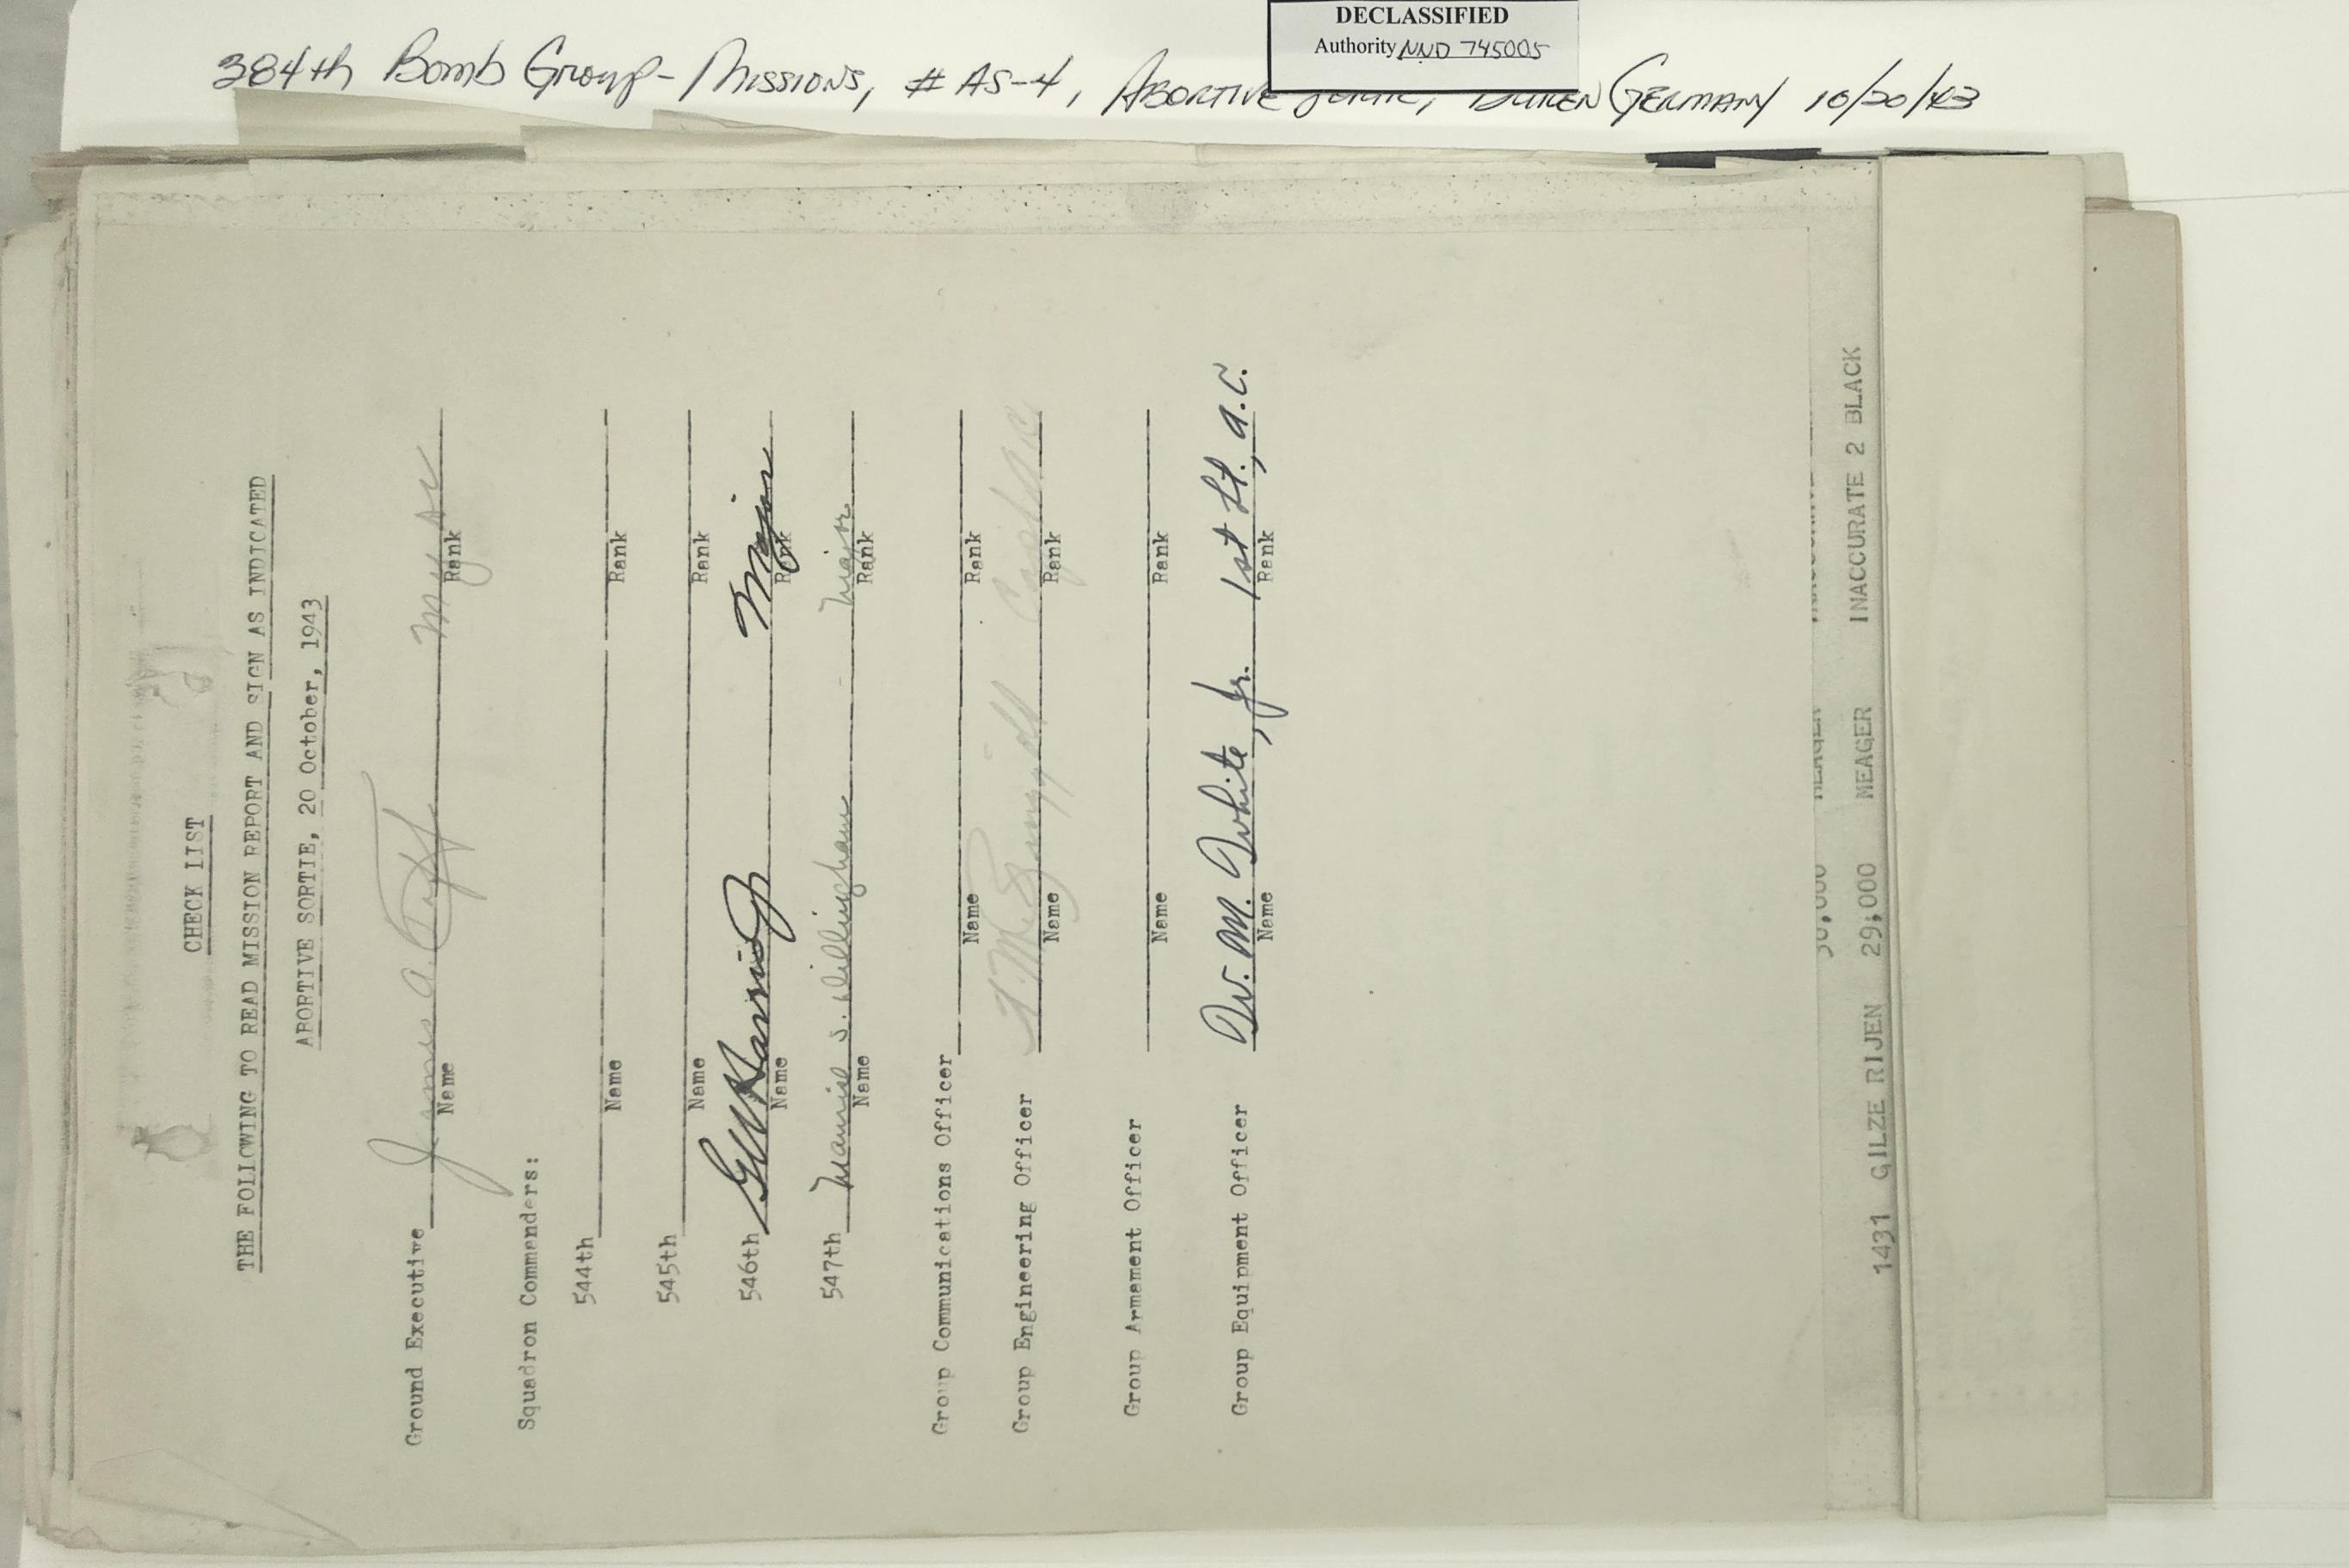 DECLASSIFIED
Authority NND 745005
384th Bomb Group - Missions, # AS-4, Abortive Germany 10/20/43
CHECK LIST
THE FOLLOWING TO READ MISSION REPORT AND SIGN AS INDICATED
ABORTIVE SORTIE, 20 October, 1943
Ground Executive James A. Major
Name Rank
Squadron Commanders:
544th
Name Rank
545th
Name Rank
546th Major
Name Rank
547th Maurice S. Dillingham Major
Name Rank
Group Communications Officer
Name Rank
Group Engineering Officer Capt AC
Name Rank
Group Armament Officer
Name Rank
Group Equipment Officer W. M. White, Jr. 1st Lt., A.C.
Name Rank
30,000 MEAGER
1431 GILZE RIJEN 29,000 MEAGER INACCURATE 2 BLACK